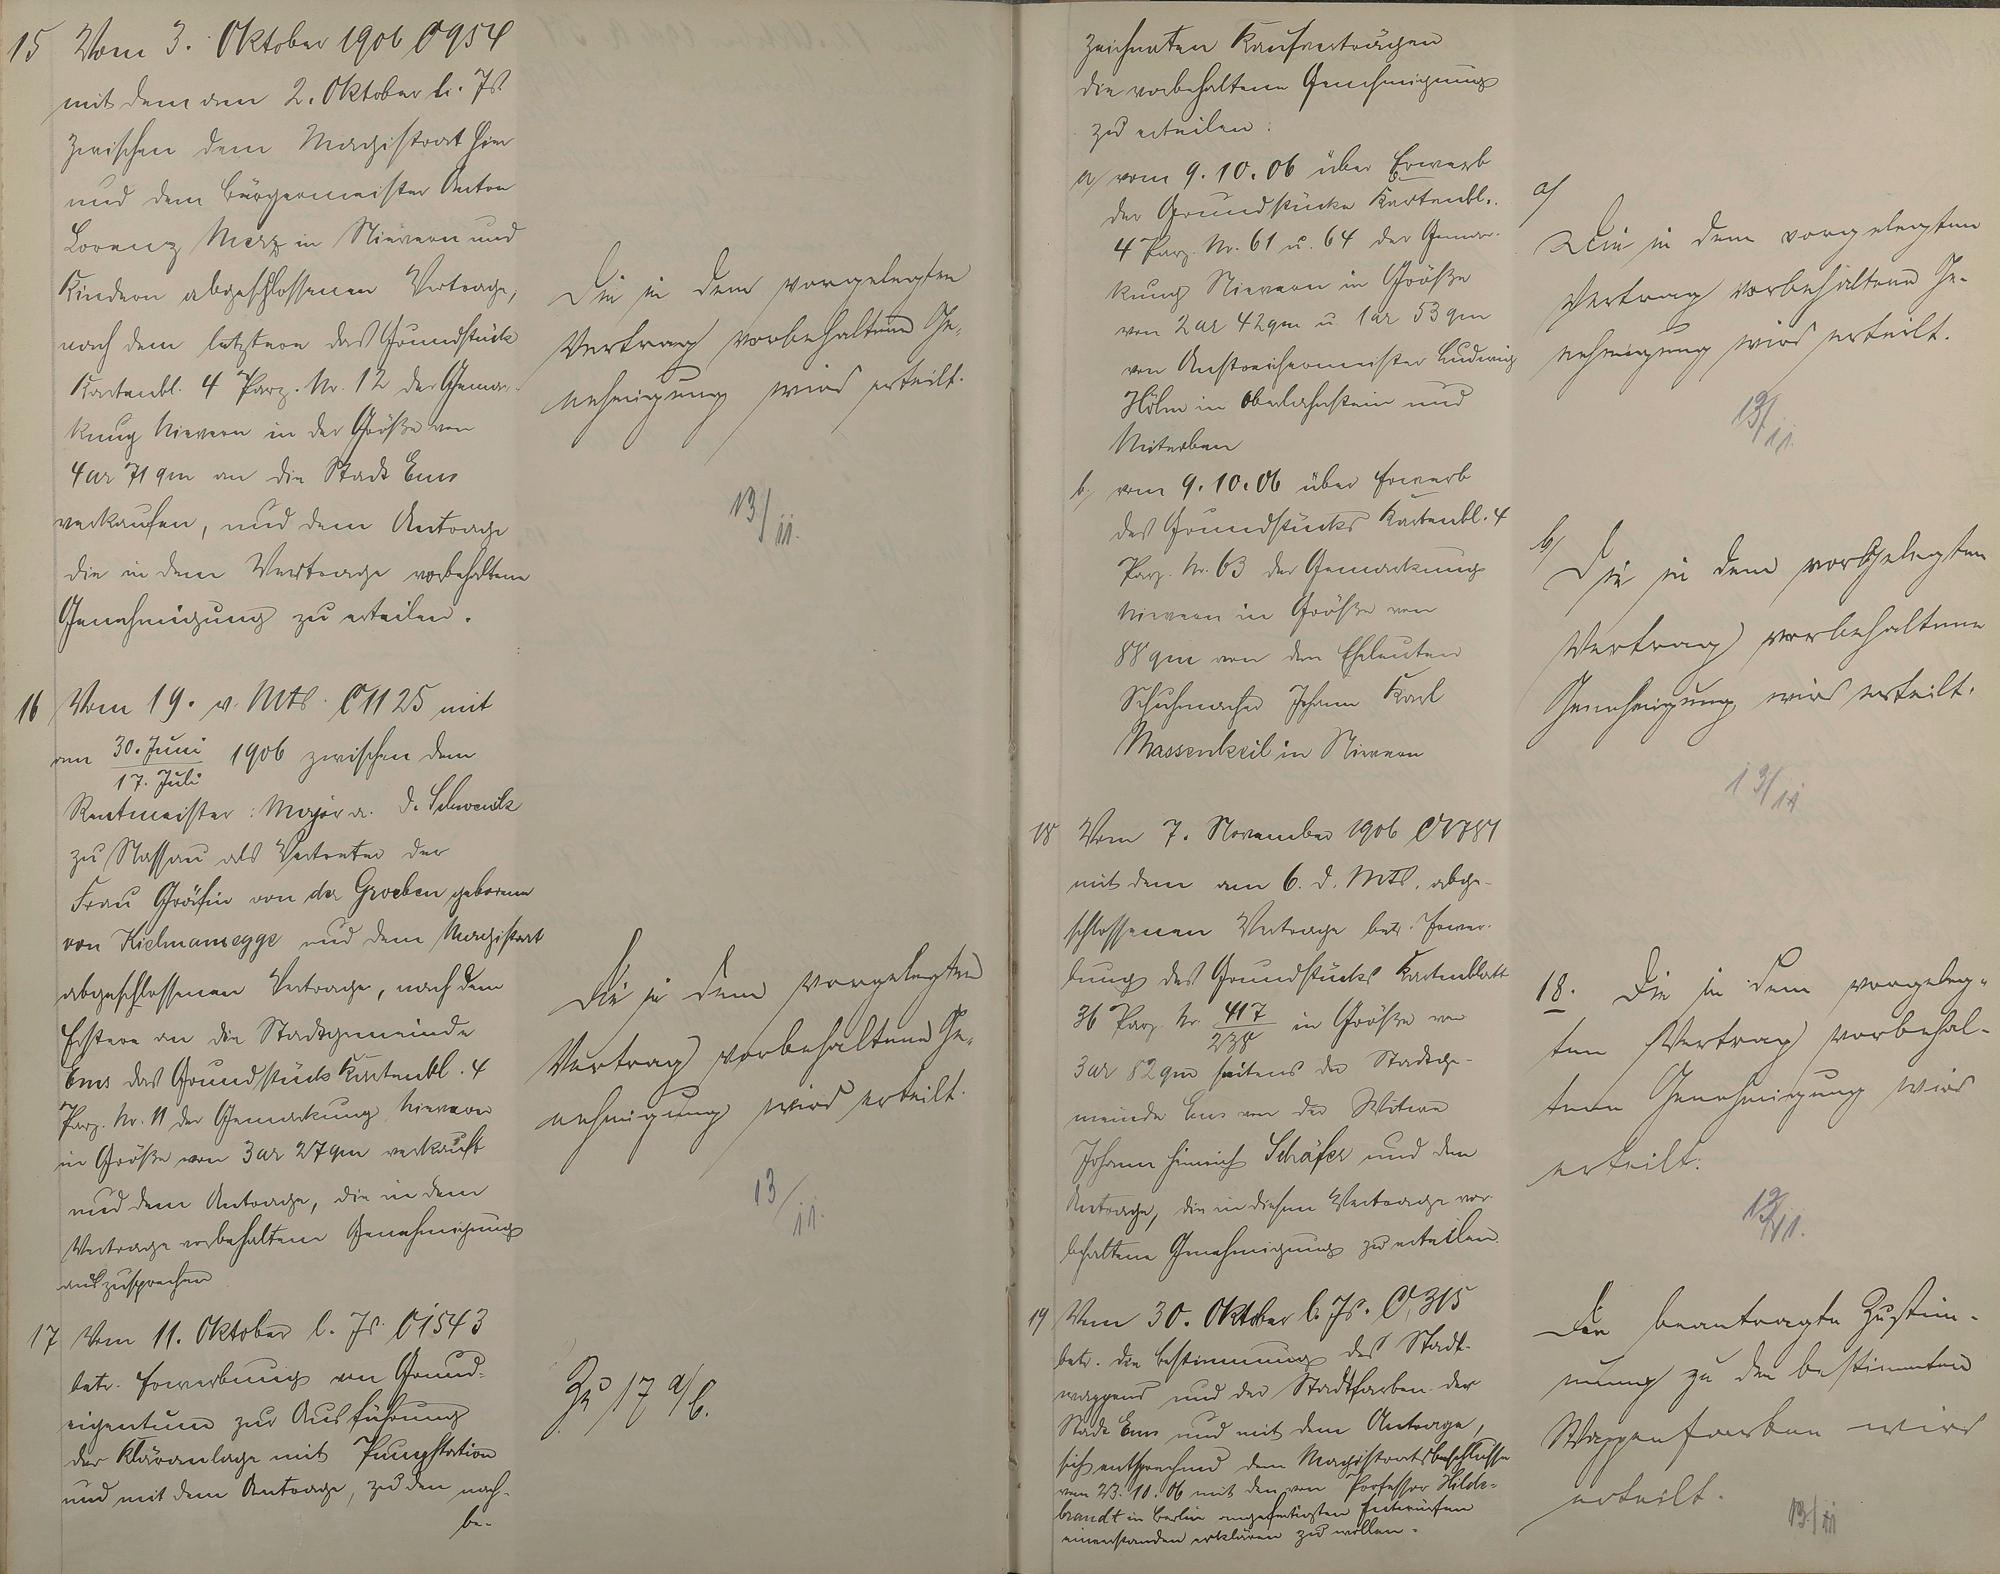 15 Vom 3. Oktober 1906 C 954
mit dem am 2. Oktober l. Js
zwischen dem Magistrat hier
und dem Bürgermeister Anton
Lorenz Merz in Nievern und
Kindern abgeschlossenen Vertrage,
nach dem letztere das Grundstück
Kartenbl. 4 Parz. Nr. 12 der Gemar-
kung Nievern in der Größe von
4 ar 71 qm an die Stadt Ems
verkaufen, und dem Antrage
die in dem Vertrage vorbehaltene
Genehmigung zu erteilen.
Die in dem vorgelegten
Vertrag vorbehaltene Ge-
nehmigung wird erteilt.
13/11.
16 Vom 19. v. Mts. C 1125 mit
am 30. Juni
17. Juli 1906 zwischen dem
Rentmeister: Major a. D. Schwenk
zu Nassau als Vertreter der
Frau Gräfin von der Groeben geborene
von Kielmansegge und dem Magistrat
abgeschlossenen Vertrage, nach dem
Erstere an die Stadtgemeinde
Ems das Grundstück Kartenbl. 4
Parz. Nr. 11 der Gemarkung Nievern
in Größe von 3 ar 27 qm verkauft
und dem Antrage, die in dem
Vertrage vorbehaltene Genehmigung
auszusprechen
Die in dem vorgelegten
Vertrag vorbehaltene Ge-
nehmigung wird erteilt.
13/11.
17 Vom 11. Oktober l. Js. C 1543
betr. Erwerbung von Grund-
eigentum zur Ausführung
der Kläranlage mit Pumpstation
und mit dem Antrage, zu den nach-
be-
Zu 17 a/b.
zeichneten Kaufverträgen
die vorbehaltene Genehmigung
zu erteilen:
a/ vom 9.10.06 über Erwerb
der Grundstücke Kartenbl.
4 Parz. Nr. 61 u. 64 der Gemar-
kung Nievern in Größe
von 2 ar 42 qm u. 1 ar 53 qm
von Anstreichermeister Ludwig
Höhn in Oberlahnstein und
Miterben
a/
Die in dem vorgelegten
Vertrag vorbehaltene Ge-
nehmigung wird erteilt.
13/11.
b/ vom 9.10.06 über Erwerb
des Grundstücks Kartenbl. 4
Parz. Nr. 63 der Gemarkung
Nievern in Größe von
88 qm von den Eheleuten
Schuhmacher Johann Karl
Massenkeil in Nievern
b/
Die in dem vorgelegten
Vertrag vorbehaltene
Genehmigung wird erteilt.
13/11
18 Vom 7. November 1906
mit dem am 6. d. Mts. abge-
schlossenen Vertrage betr. Erwer-
bung des Grundstücks Kartenblatt
36 Parz. Nr. 417/238 in Größe von
3 ar 82 qm seitens der Stadtge-
meinde Ems von der Witwe
Johann Heinrich Schäfer und dem
Antrage, die in diesem Vertrage vor-
behaltene Genehmigung zu erteilen.
18. Die in dem vorgeleg-
ten Vertrag vorbehal-
tene Genehmigung wird
erteilt.
13/11.
19 Vom 30. Oktober l. Js. C. 315
betr. die Bestimmung des Stadt-
wappens und der Stadtfarben der
Stadt Ems und mit dem Antrage,
sich entsprechend dem Magistratsbeschlusse
vom 23.10.06 mit den von Professor Hilde-
brandt in Berlin angefertigten Entwürfen
einverstanden erklären zu wollen.
Die beantragte Zustim-
mung zu den bestimmten
Wappenfarben wird
erteilt.
13/11